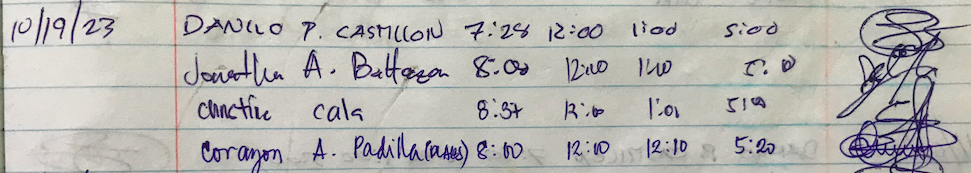 10/19/23 DANILO P. CASTILLON 7:28 12:00 1:00 5:00
Jonathan A. Baltazar 8:00 12:00 1:00 5:00
cala 8:37 12:10 1:01 5:10
Corazon A. Padilla 8:00 12:10 12:10 5:20